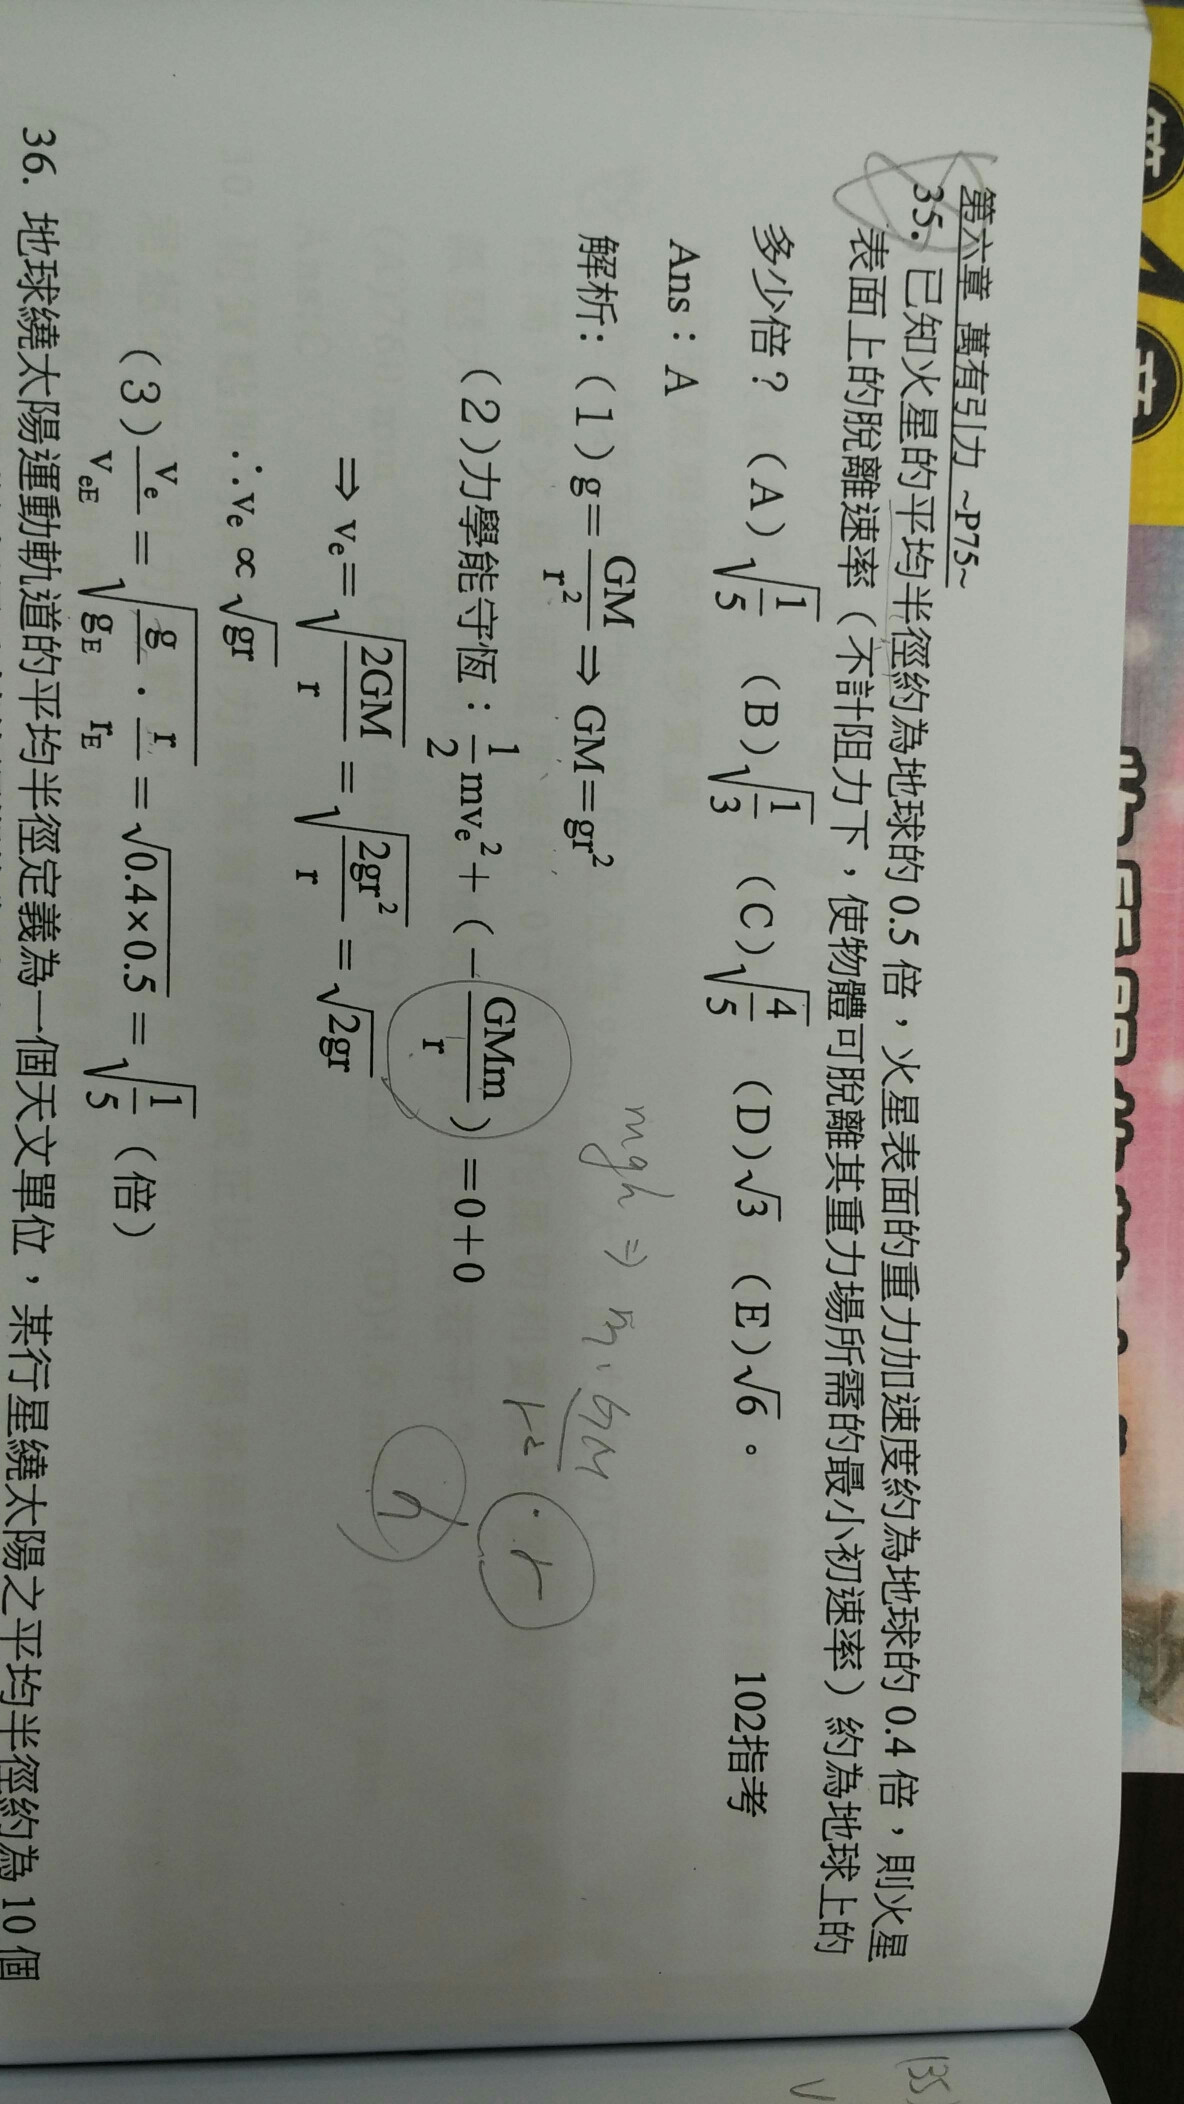 第六章 萬有引力 ~P75~
35. 已知火星的平均半徑約為地球的 0.5 倍，火星表面的重力加速度約為地球的 0.4 倍，則火星
表面上的脫離速率（不計阻力下，使物體可脫離其重力場所需的最小初速率）約為地球上的
多少倍？ (A)√(1/5) (B)√(1/3) (C)√(4/5) (D)√3 (E)√6。 102指考
Ans：A
解析：(1) g = GM/r² ⇒ GM = gr²
mgh ⇒ m · GM/r² · r
(2)力學能守恆：1/2 mvₑ² + (－GMm/r) = 0 + 0
h
⇒ vₑ = √(2GM/r) = √(2gr²/r) = √(2gr)
∴vₑ ∝ √(gr)
(3) vₑ/vₑE = √(g/gE · r/rE) = √(0.4×0.5) = √(1/5)（倍）
36. 地球繞太陽運動軌道的平均半徑定義為一個天文單位，某行星繞太陽之平均半徑約為 10 個
(35)